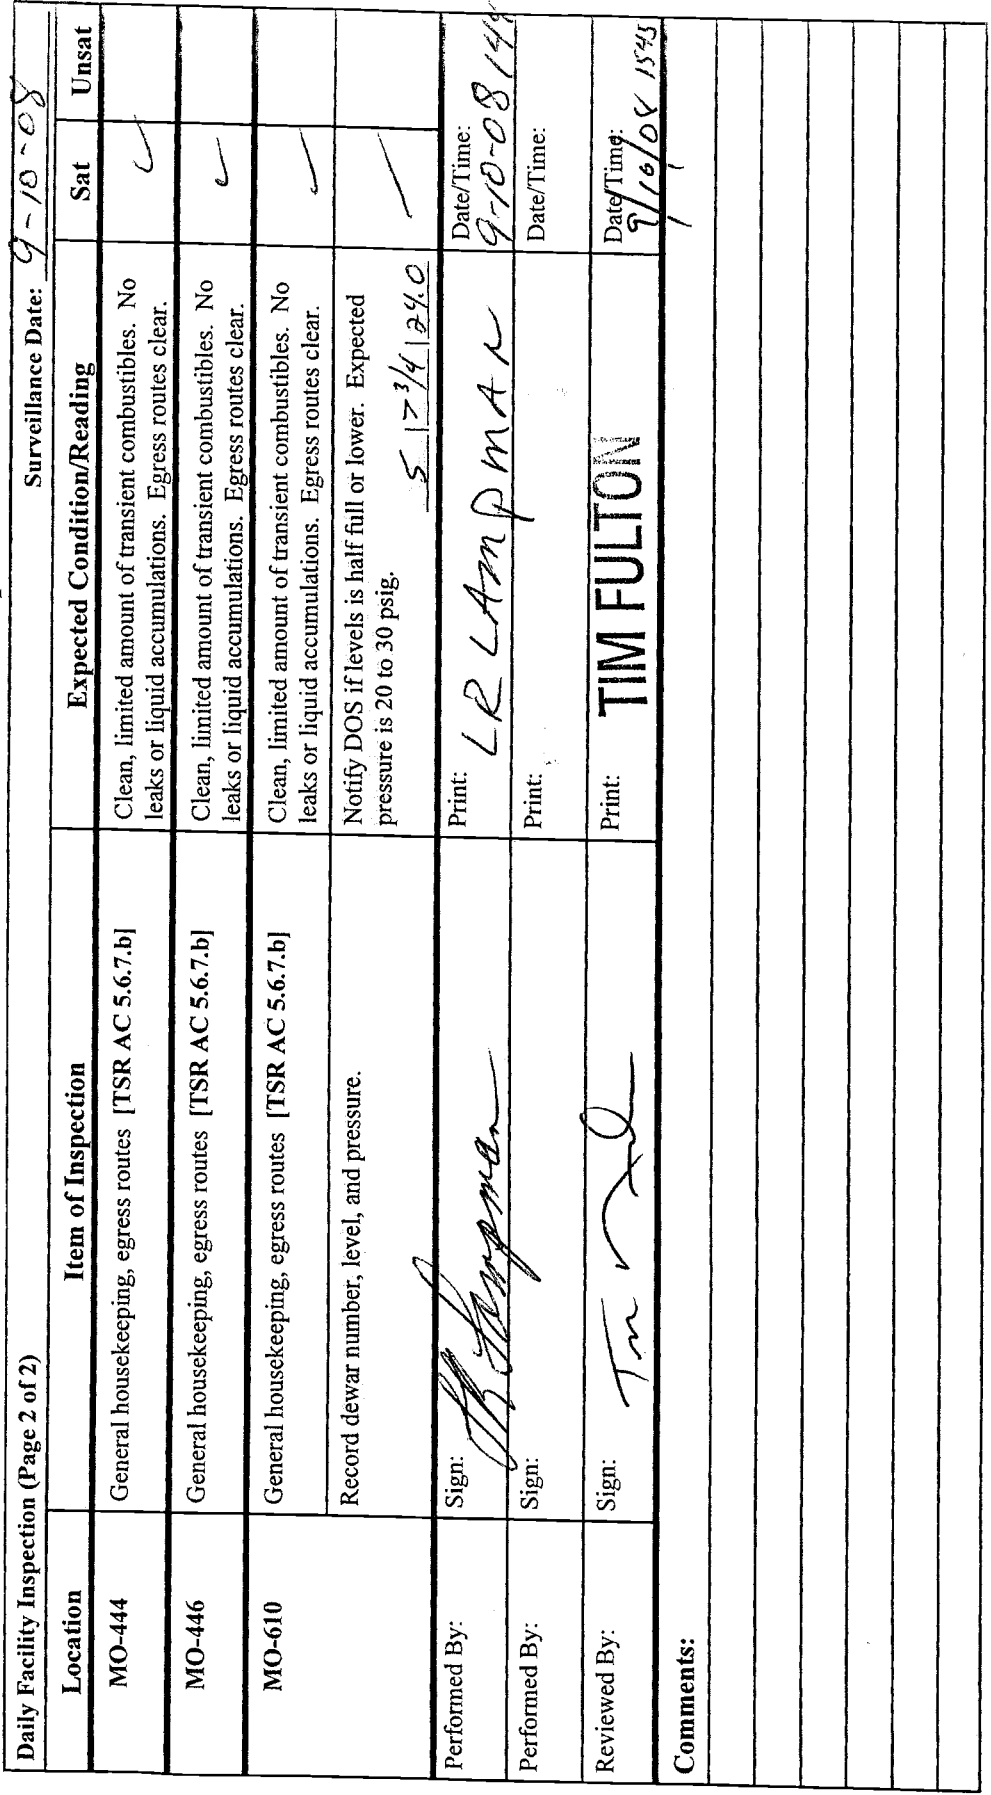 Daily Facility Inspection (Page 2 of 2) Surveillance Date: 9-10-08
Location Item of Inspection Expected Condition/Reading Sat Unsat
MO-444 General housekeeping, egress routes [TSR AC 5.6.7.b] Clean, limited amount of transient combustibles. No
leaks or liquid accumulations. Egress routes clear.
MO-446 General housekeeping, egress routes [TSR AC 5.6.7.b] Clean, limited amount of transient combustibles. No
leaks or liquid accumulations. Egress routes clear.
MO-610 General housekeeping, egress routes [TSR AC 5.6.7.b] Clean, limited amount of transient combustibles. No
leaks or liquid accumulations. Egress routes clear.
Record dewar number, level, and pressure. Notify DOS if levels is half full or lower. Expected
pressure is 20 to 30 psig.
5 | >3/4 | 24.0
Performed By: Sign: LR Lampman Print: LR LAMPMAN Date/Time:
9-10-08
Performed By: Sign: Print: Date/Time:
Reviewed By: Sign: Print: TIM FULTON Date/Time:
9/10/08 1545
Comments: